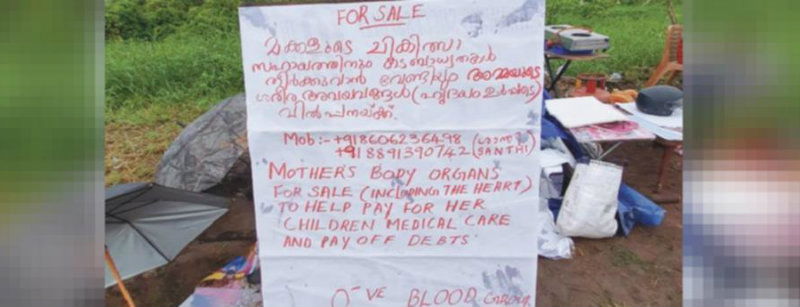 FOR SALE
മക്കളുടെ ചികിത്സാ
സഹായത്തിനും കടബാധ്യതകൾ
തീർക്കുവാൻ വേണ്ടിയും അമ്മയുടെ
ശരീര അവയവങ്ങൾ (ഹൃദയം ഉൾപ്പടെ)
വിൽപ്പനയ്ക്ക്.
Mob :- +918606236498 (ശാന്തി)
+918891390742 (SANTHI)
MOTHERS BODY ORGANS
FOR SALE (INCLUDING THE HEART)
TO HELP PAY FOR HER
CHILDREN MEDICAL CARE
AND PAY OFF DEBTS
O -VE BLOOD GROUP